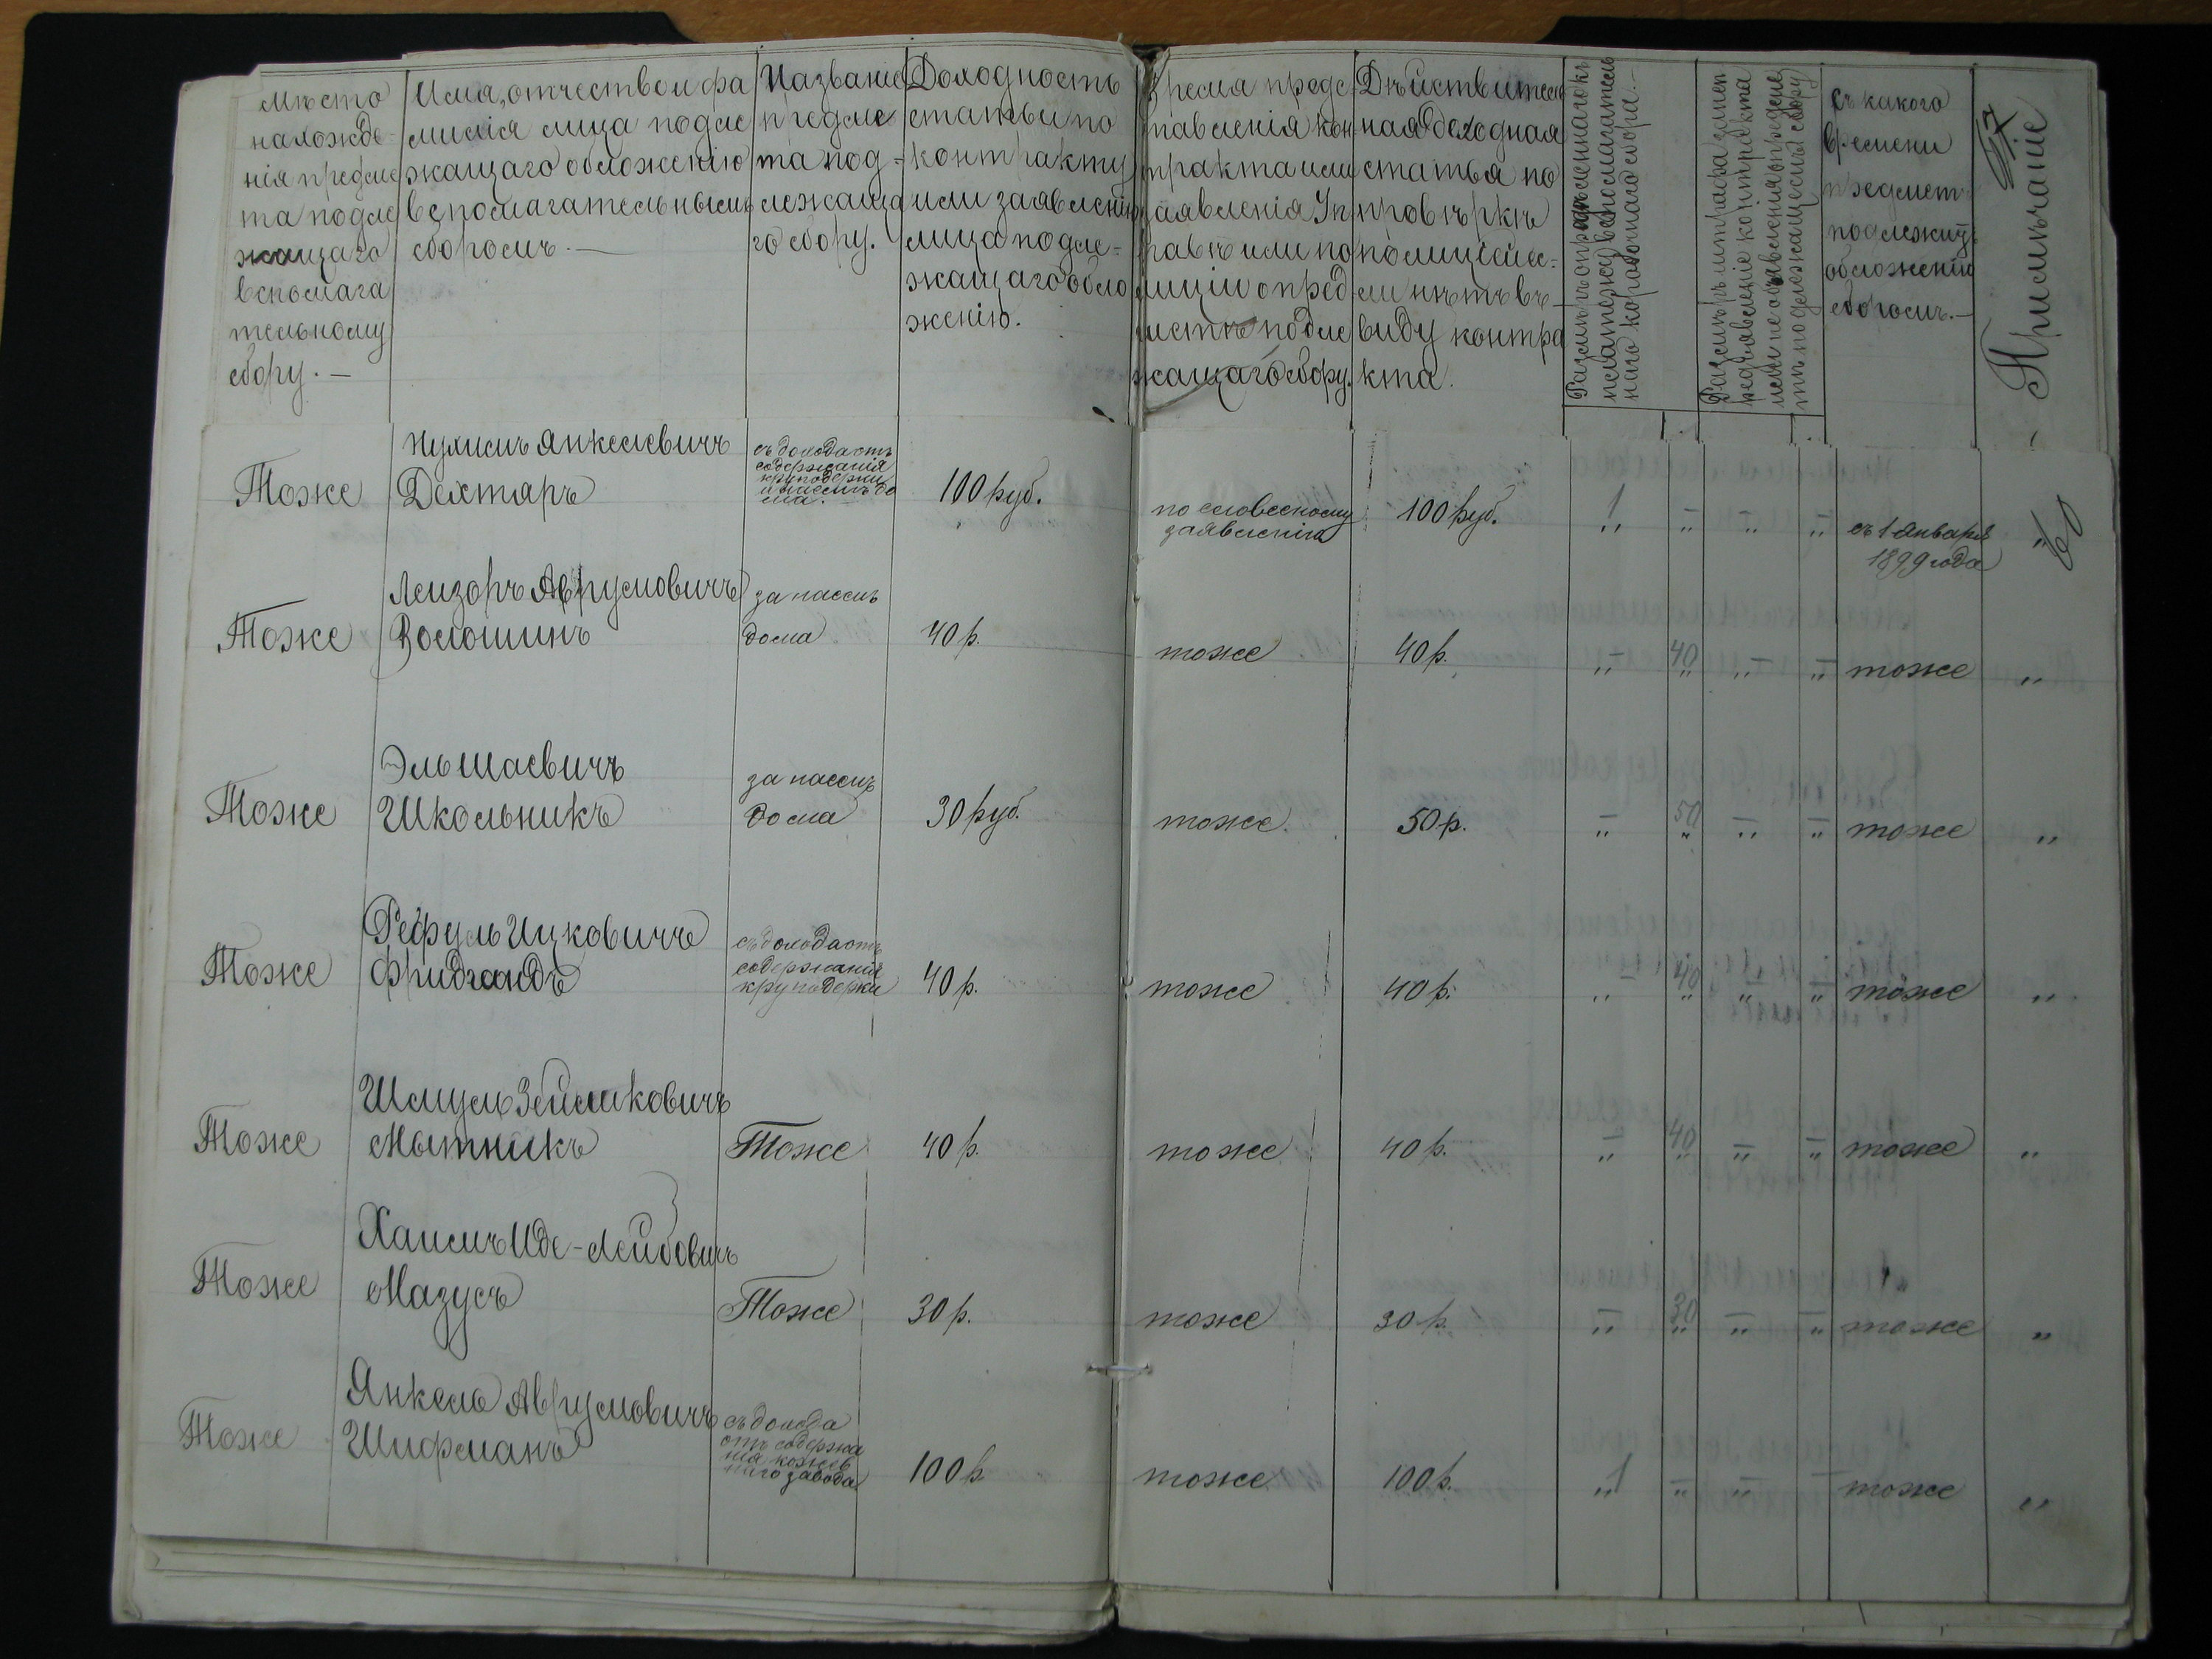 Мѣсто
нахожде-
нія предме
та подле
жащаго
вспомага
тельному
сбору. —
Имя, отчество и фа
милія лица подле
жащаго обложенію
вспомагательнымъ
сборомъ. —
Названіе
предме
та под-
лежаща
го сбору.
Доходность
статьи по
контракту
или заявленію
лица подле-
жащаго обло
женію.
Время предс
тавленія кон
тракта или
заявленія Уп
равѣ или по
лиціи о пред
метѣ подле
жащаго сбору.
Дѣйствитель
ная доходная
статья по
провѣркѣ
полиціей е-
сли нѣтъ въ
виду контра
кта.
Размѣръ опредѣленнаго къ
платежу вспомагатель
наго коробочнаго сбора. —
Размѣръ штрафа за неп
редъявленіе контракта
съ какого
времени
предмет
подлежитъ
обложенію
сборомъ. —
Примѣчаніе
60
Тоже
Нухимъ Янкелевичъ
Дехтяръ
съ дохода отъ
содержанія
круподерки
и наемъ до
ма.
100 руб.
по словесному
заявленію
100 руб.
1
съ 1 Января
1899 года
"
Тоже
Лейзоръ Аврумовичъ
Волошинъ
за наемъ
дома
40 р.
тоже
40 р.
40
тоже
"
Тоже
Эль Шаевичъ
Школьникъ
за наемъ
дома
30 руб.
тоже
50 р.
50
тоже
"
Тоже
Рефуль Ицковичъ
Фридландъ
съ дохода отъ
содержанія
круподерки
40 р.
тоже
40 р.
40
тоже
"
Тоже
Шмуль Зейликовичъ
Мытникъ
Тоже
40 р.
тоже
40 р.
40
тоже
"
Тоже
Хаимъ Иде-Лейбовичъ
Мазусъ
Тоже
30 р.
тоже
30 р.
30
тоже
"
Тоже
Янкель Аврумовичъ
Шифманъ
съ дохода
отъ содержа
нія кожев
наго завода
100 р.
тоже
100 р.
1
тоже
"